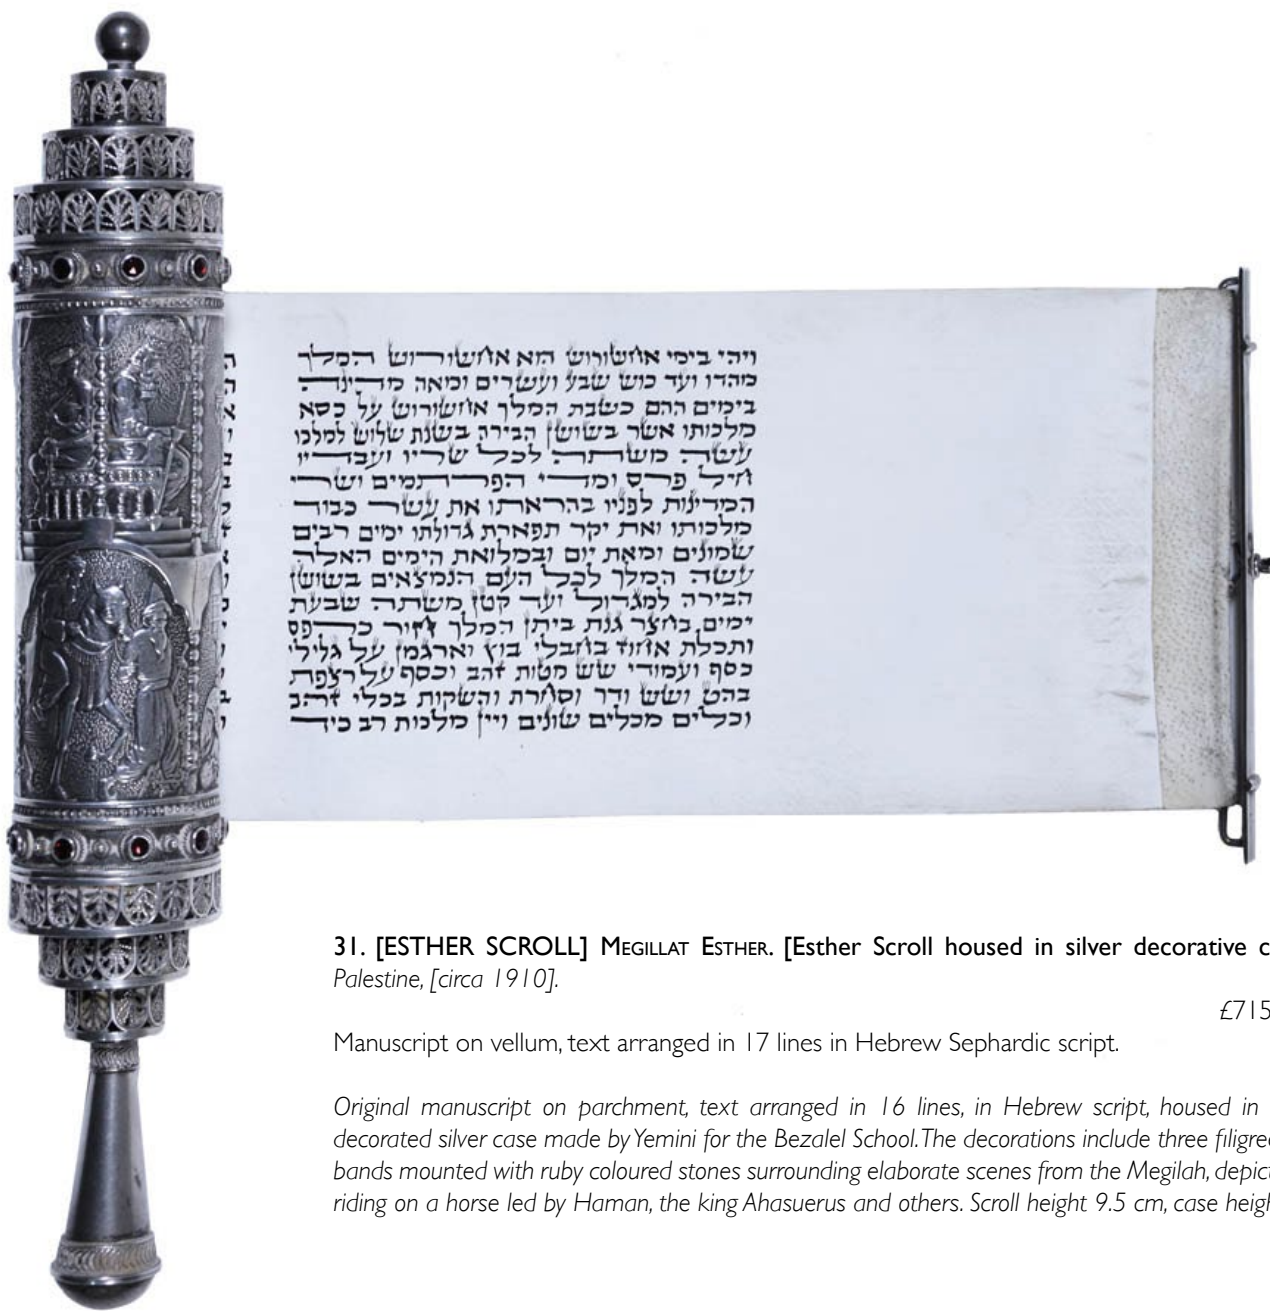 ויהי בימי אחשורוש הוא אחשורוש המלך
מהדו ועד כוש שבע ועשרים ומאה מדינה
בימים ההם כשבת המלך אחשורוש על כסא
מלכותו אשר בשושן הבירה בשנת שלוש למלכו
עשה משתה לכל שריו ועבדיו
חיל פרס ומדי הפרתמים ושרי
המדינות לפניו בהראתו את עשר כבוד
מלכותו ואת יקר תפארת גדולתו ימים רבים
שמונים ומאת יום ובמלואת הימים האלה
עשה המלך לכל העם הנמצאים בשושן
הבירה למגדול ועד קטן משתה שבעת
ימים בחצר גנת ביתן המלך חור כרפס
ותכלת אחוז בחבלי בוץ וארגמן על גלילי
כסף ועמודי שש מטות זהב וכסף על רצפת
בהט ושש ודר וסחרת והשקות בכלי זהב
וכלים מכלים שונים ויין מלכות רב כיד
31. [ESTHER SCROLL] MEGILLAT ESTHER. [Esther Scroll housed in silver decorative c
Palestine, [circa 1910].
£715
Manuscript on vellum, text arranged in 17 lines in Hebrew Sephardic script.
Original manuscript on parchment, text arranged in 16 lines, in Hebrew script, housed in
decorated silver case made by Yemini for the Bezalel School. The decorations include three filigree
bands mounted with ruby coloured stones surrounding elaborate scenes from the Megilah, depict
riding on a horse led by Haman, the king Ahasuerus and others. Scroll height 9.5 cm, case heigh